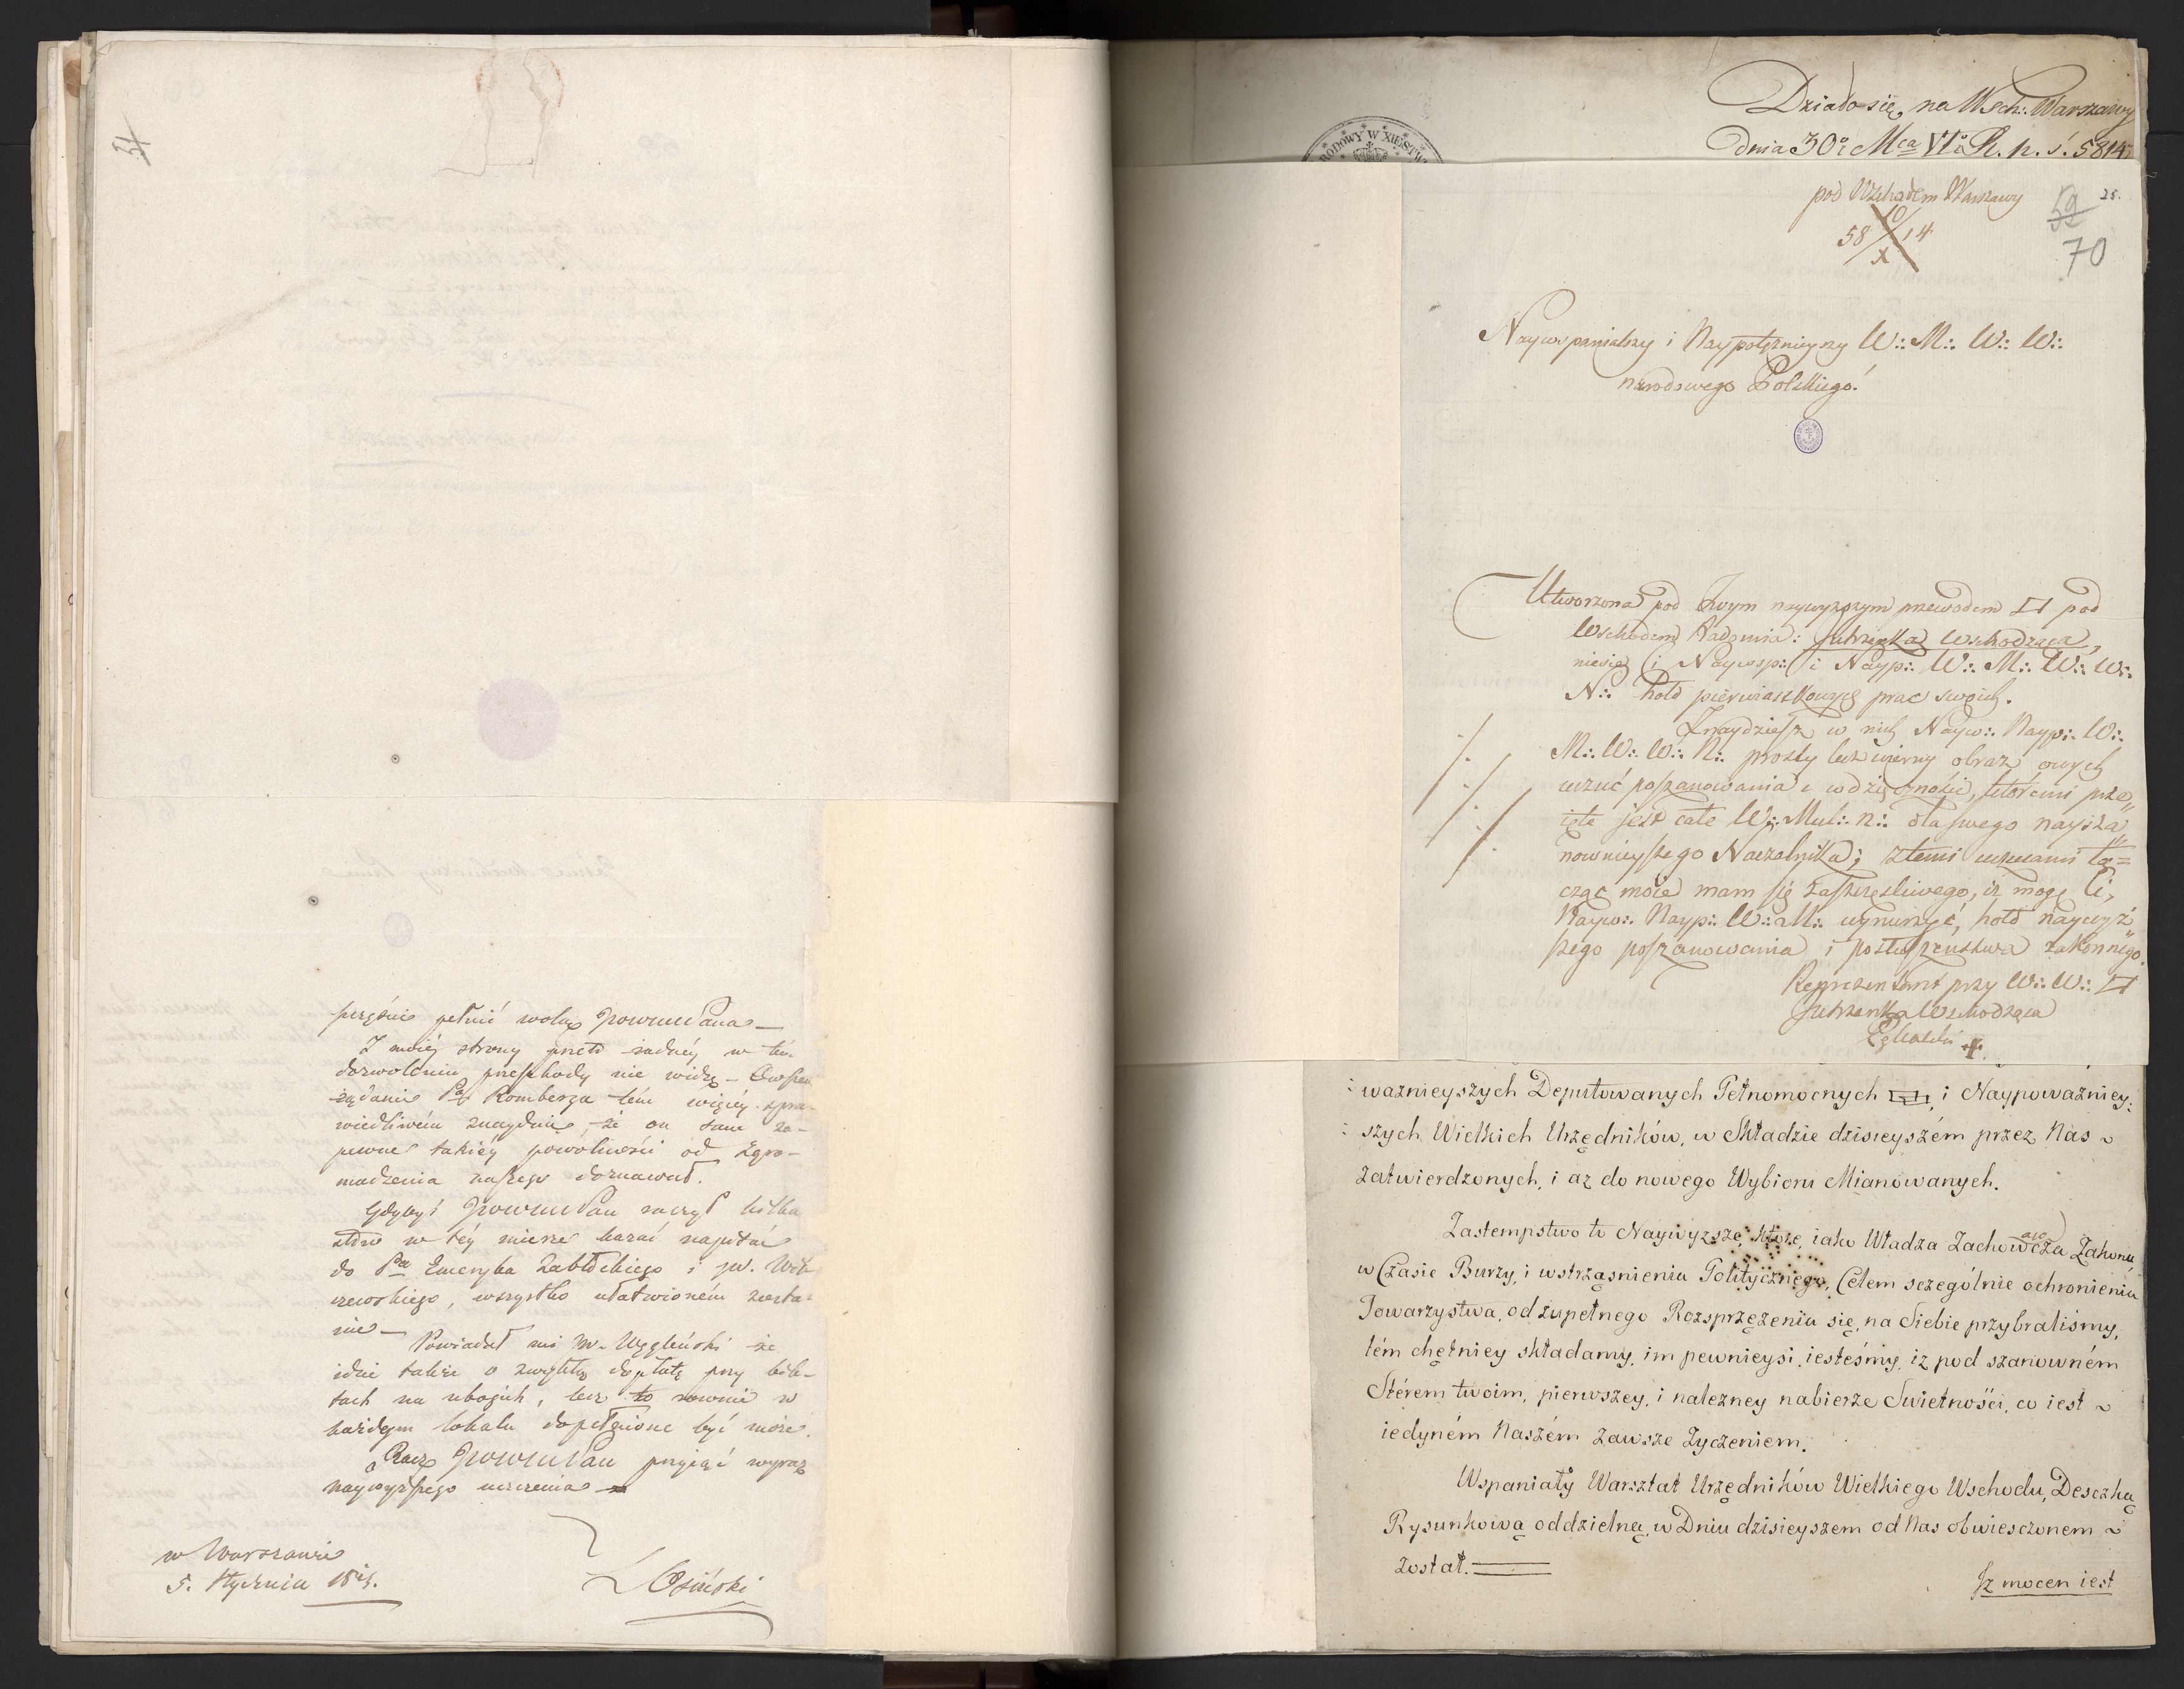 szczęśnie pełnić wolę JWWMM Pana —
Z moiéj strony przeto żadnéy w tém
dozwoleniu przeszkody nie widzę — Owszem
żądanie Pa Romberga tém więcéy spra-
wiedliwém znayduię, że on sam za-
pewne takiéy powolności od Zgro-
madzenia naszego doznawał.
Gdybyś Pan raczył kilka
słów w téy mierze kazać napisać
do Pa Emeryka Zabłockiego i JW.
, wszystko ułatwioném zosta-
nie — Powiadał mi W. Węgleński że
idzie także o zwykłą dopłatę przy bile-
tach na ubogich, lecz to równie w
każdym lokalu dopełnione być może.
Racz Pan przyiąć wyraz
naywyższego uczczenia —
w Warszawie
5. Stycznia
L Osiński
Działo się na Wsch: Warszawy
dnia 30 Mca VI R. p. ś. 5814
RODOWY W XIĘSTW
pod Wschodem Warszawy
58 10/X 14
59
28.
70
Naywspanialszy i Naypotężnieyszy W∴ M∴ W∴ W∴
narodowego Polskiego!
Utworzona pod Twym naywyższym przewodem □ pod
Wschodem Radomia: Jutrzenka Wschodząca,
niesie Ci Naywsp∴ i Nayp∴ W∴ M∴ W∴ W∴
N∴ hołd pierwiastkowych prac swoich.
Znaydziesz w nich Nayw∴ Nayp∴ W∴
M∴ W∴ W∴ N∴ prosty lecz wierny obraz owych
uczuć poszanowania i wdzięczności, któremi prze„
ięte jest całe W∴ Mul∴ n∴ dla swego naysza„
nownieyszego Naczelnika; z temi uczuciami łą=
cząc moie mam się za szczęśliwego, iż mogę Ci,
Nayw∴ Nayp∴ W∴ M∴ wynurzyć, hołd naywyż„
szego poszanowania i posłuszeństwa zakonnego.
Reprezentant przy W∴ W∴ □
Jutrzenka Wschodząca
ważnieyszych Deputowanych Pełnomocnych □, i Naypoważniey:
: szych Wielkich Urzędników, w Składzie dzisieyszém przez Nas ~
zatwierdzonych, i aż do nowego Wybioru Mianowanych.
Zastempstwo to Naywyzsze, które, iako Władza Zachowawcza Zakonu
w Czasie Burzy, i wstrząsnieniu Politycznego, Celem sczególnie ochronieniu
Towarzystwa, od zupełnego Rozsprzężeniu się, na Siebie przybraliśmy,
tém chętniey składamy, im pewnieysi iesteśmy, iż pod szanowném
Stérem twoim, pierwszey, i należney nabierze Swietności, co iest ~
iedyném Naszém zawsze życzeniem.
Wspaniały Warsztat Urzędników Wielkiego Wschodu, Desczką
Rysunkową oddzielną, w Dniu dzisieyszem od Nas obwiesczonem ~
został.
Iż mocen iest